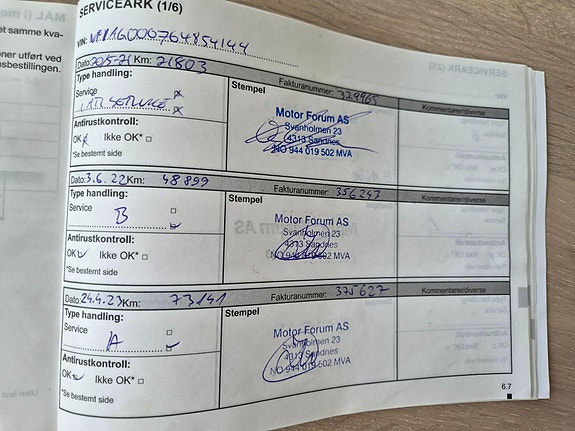 MAL (i me
et samme kva-
oner utført ved
nsbestillingen.
SERVICEARK (1/6)
VIN:
Dato: 20/5-21 Km: 21803 Fakturanummer: 329965 Kommentarer/diverse
Type handling:
Service
SERVICE
Stempel
Motor Forum AS
Svanholmen 23
4313 Sandnes
NO 944 019 502 MVA
Antirustkontroll:
OK Ikke OK*
*Se bestemt side
Dato: 3.6.22 Km: 48899 Fakturanummer: 356243 Kommentarer/diverse
Type handling:
Service
B
Stempel
Motor Forum AS
Svanholmen 23
4313 Sandnes
NO 944 019 502 MVA
Antirustkontroll:
OK Ikke OK*
*Se bestemt side
Dato: 24.4.23 Km: 73141 Fakturanummer: 375627 Kommentarer/diverse
Type handling:
Service
A
Stempel
Motor Forum AS
Svanholmen 23
4313 Sandnes
NO 944 019 502 MVA
Antirustkontroll:
OK Ikke OK*
*Se bestemt side
6.7